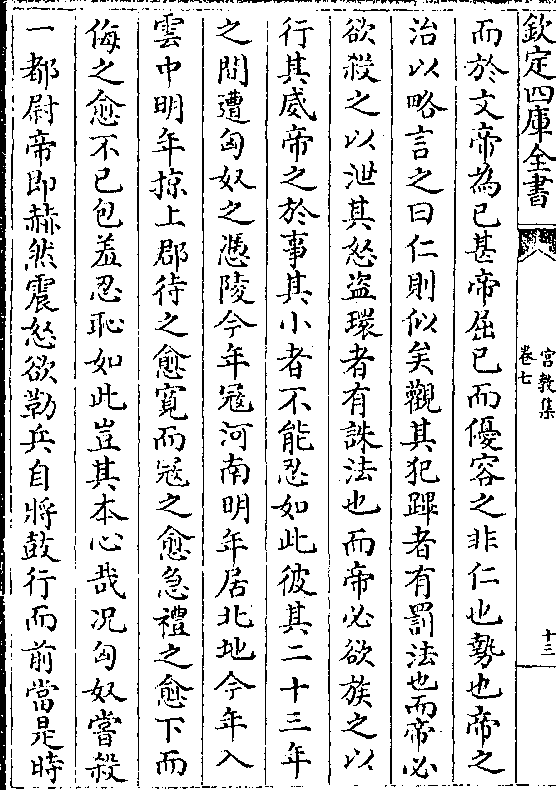 欽定四庫全書
宮教集
卷七
十三
而於文帝為已甚帝屈已而優容之非仁也勢也帝之
治以略言之曰仁則似矣觀其犯蹕者有罰法也而帝必
欲殺之以泄其怒盜環者有誅法也而帝必欲族之以
行其威帝之於事其小者不能忍如此彼其二十三年
之間遭匈奴之憑陵今年冦河南明年居北地今年入
雲中明年掠上郡待之愈寛而冦之愈急禮之愈下而
侮之愈不已包羞忍恥如此豈其本心哉况匈奴嘗殺
一都尉帝即赫然震怒欲勒兵自將鼓行而前當是時